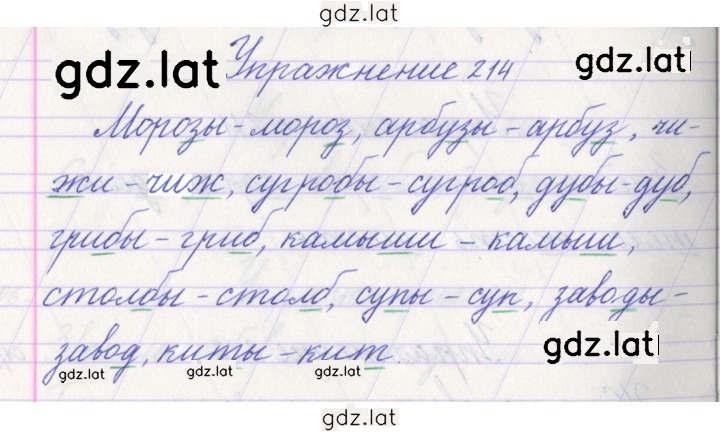 gdz.lat
gdz.lat Упражнение 214 gdz.lat
Морозы - мороз, арбузы - арбуз, чи-
жи - чиж, сугробы - сугроб, дубы - дуб,
грибы - гриб, камыши - камыш,
столбы - столб, супы - суп, заводы -
завод, киты - кит. gdz.lat
gdz.lat gdz.lat gdz.lat
gdz.lat